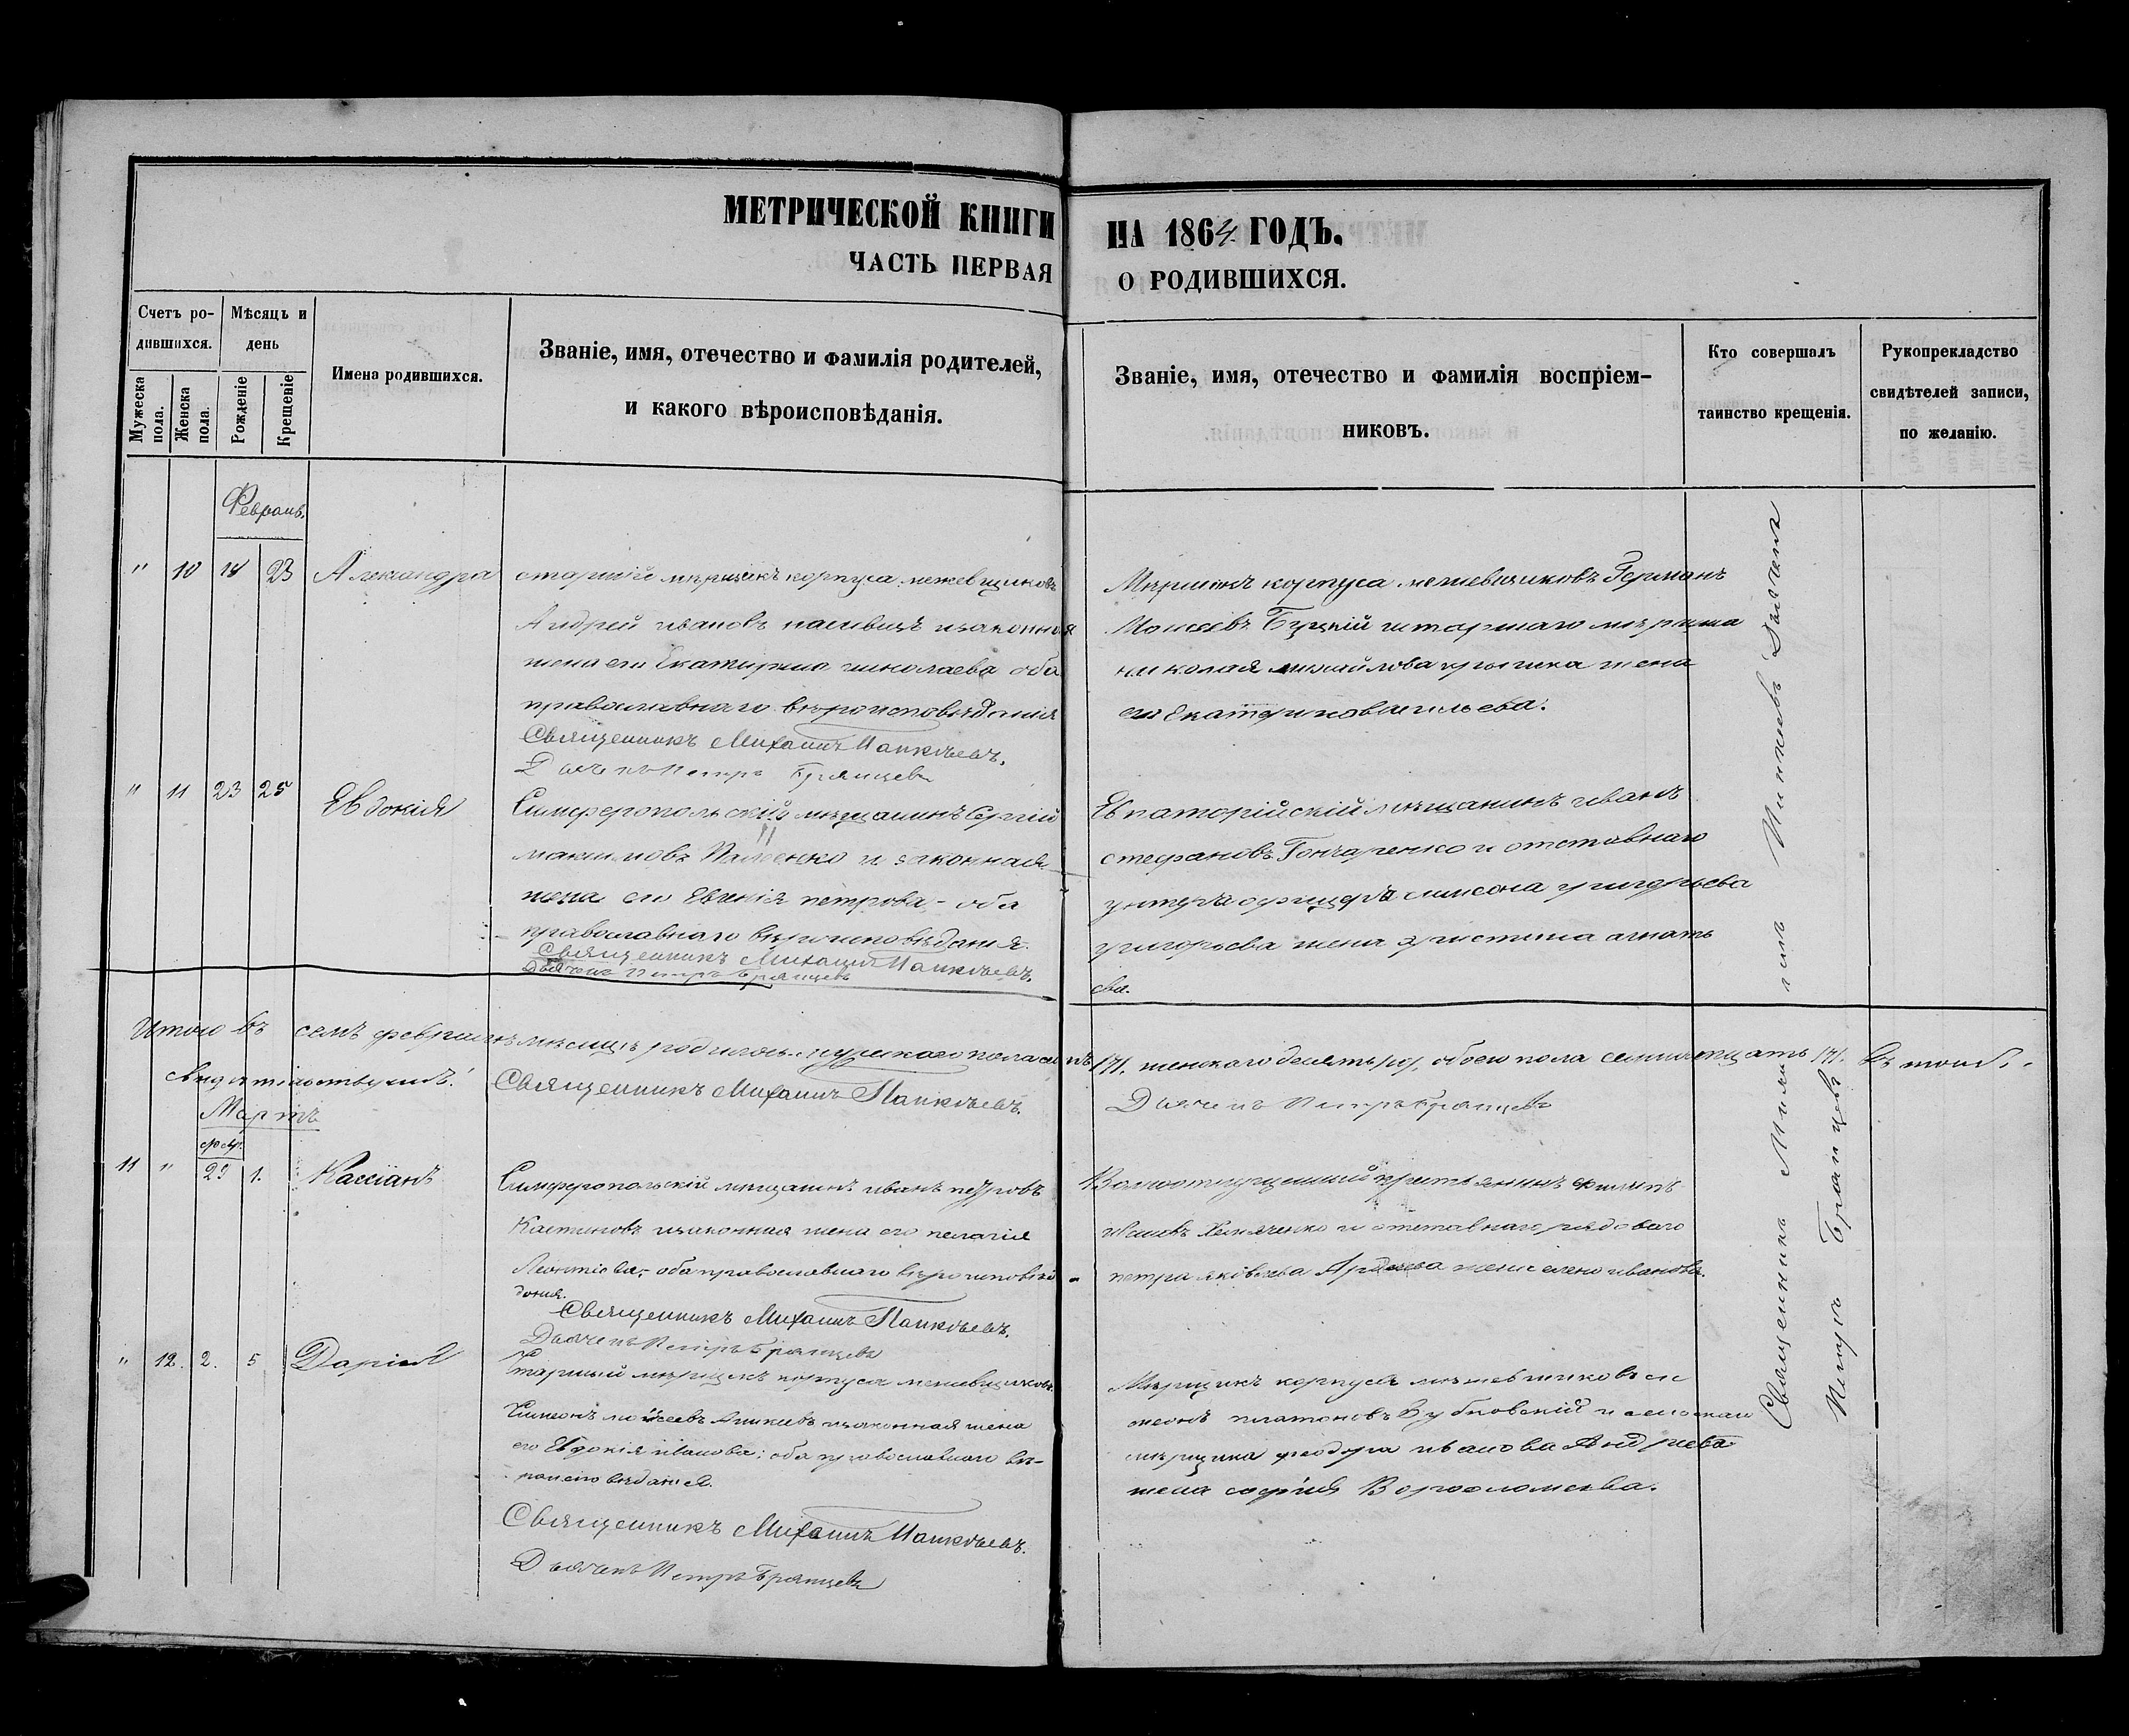 МЕТРИЧЕСКОЙ КНИГИ НА 1864 ГОДЪ.
ЧАСТЬ ПЕРВАЯ О РОДИВШИХСЯ.
Счетъ ро-
дившихся.
Мужеска пола.
Женска пола.
Мѣсяцъ и
день
Рожденіе
Крещеніе
Имена родившихся.
Званіе, имя, отечество и фамилія родителей,
и какого вѣроисповѣданія.
Званіе, имя, отечество и фамилія воспріем-
никовъ.
Кто совершалъ
таинство крещенія.
Рукоприкладство
свидѣтелей записи,
по желанію.
Февраль.
" 10 18 23 Александра
старшій мѣрщикъ корпуса межевщиковъ
Андрей Ивановъ изаконная
жена его Екатирина николаева оба
православнаго вѣроисповѣданія
Священникъ Михаилъ
Дьячекъ Петръ Брянцевъ
Мѣрщикъ корпуса межевщиковъ Германъ
Моисеевъ Буцкій истаршаго мѣрщика
николая михайлова жена
его Екатерина васильева.
" 11 23 25 Евдокія
Симферопольскій мѣщанинъ Сергій
максимовъ и законная
жена его Евгенія петрова - оба
православнаго вѣроисповѣданія.
Священникъ Михаилъ
Дьячекъ Петръ Брянцевъ
Евпаторійскій мѣщанинъ иванъ
стефановъ Гончаренко и отставнаго
унтеръ офицера симеона григорьева
григорьева жена христина игнать
ева.
Итого въ семъ февралѣ мѣсяцѣ родилось мужескаго пола семь /7/. женскаго десять /10/, обоего пола семнатцать /17/. въ томъ
свидѣтельствуемъ:
Священникъ Михаилъ
Дьячекъ Петръ Брянцевъ
Мартъ
11 " 29 1. Кассіанъ
Симферопольскій мѣщанинъ иванъ петровъ
изаконная жена его пелагія
Леонтіева; оба православнаго вѣроисповѣ
данія.
Священникъ Михаилъ
Дьячекъ Петръ Брянцевъ
Вольноотпущенный крестьянинъ филипъ
и отставнаго рядоваго
петра яковлева жена елена иванова.
" 12. 2. 5 Дарія
Старшій мѣрщикъ корпуса межевщиковъ
Симеонъ моисеевъ Аникіевъ изаконная жена
его Евдокія иванова; оба православнаго вѣ-
роисповѣданія.
Священникъ Михаилъ
Дьячекъ Петръ Брянцевъ
Мѣрщикъ корпуса межевщиковъ си
меонъ платоновъ и
мѣрщика феодора иванова Андреева
жена софія Ворфоломеева.
Священникъ
Петръ Брянцевъ